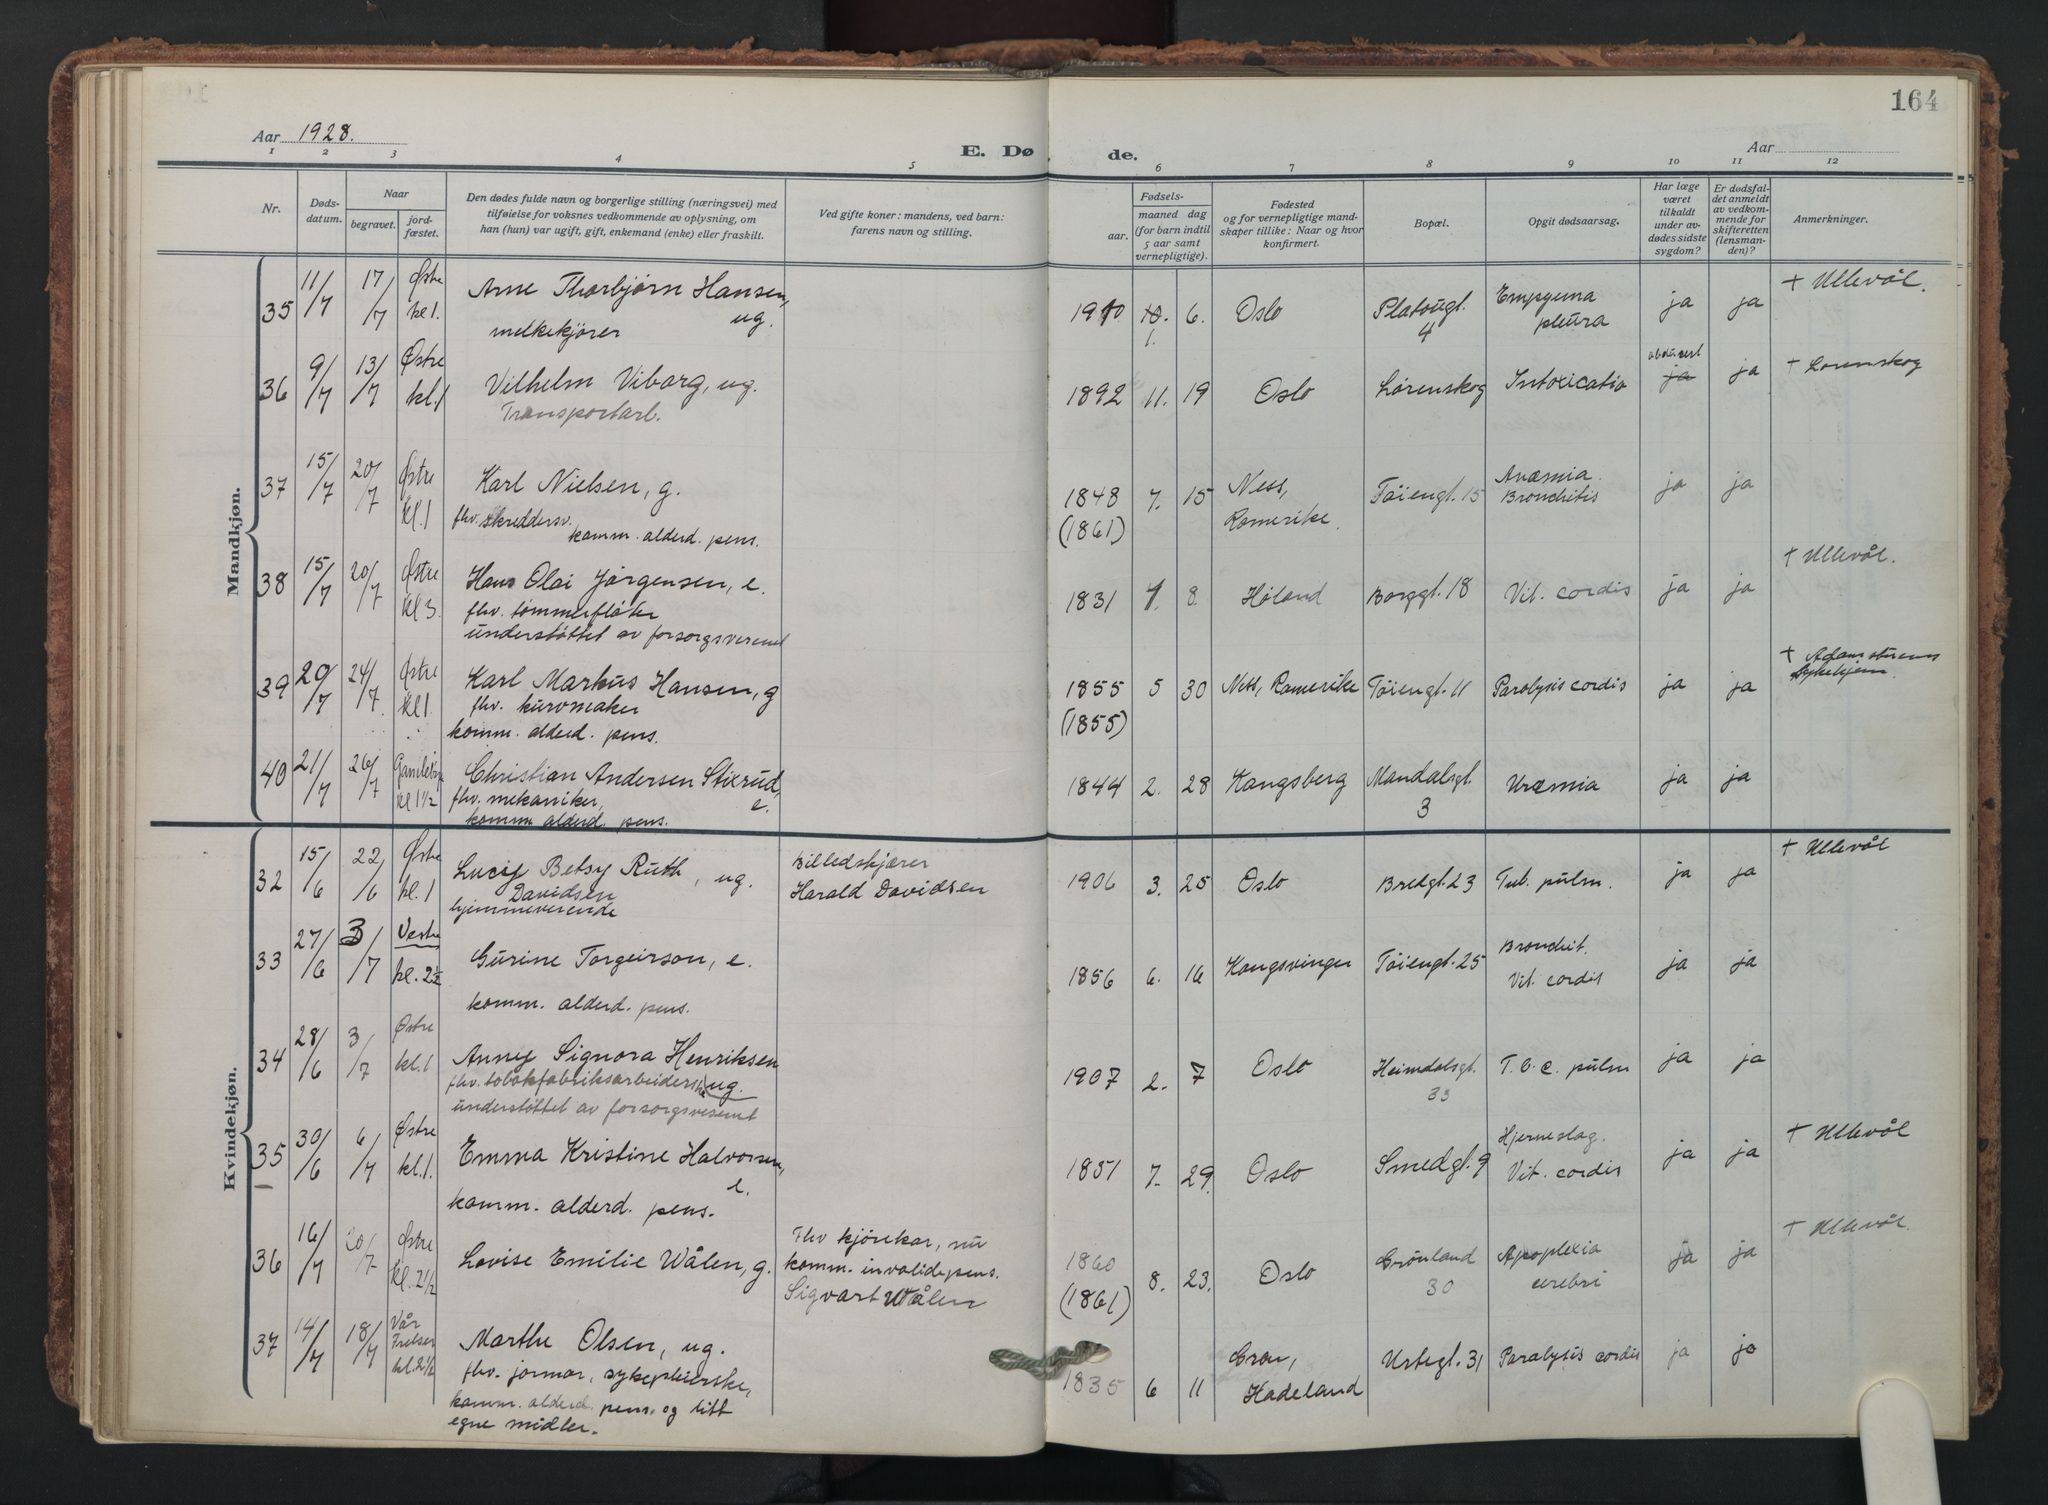 164
Aar 1928.
E. Dø de.
Aar
1 2 3 4 5 6 7 8 9 10 11 12
Nr.
Døds-
datum.
Naar
begravet.
jord-
fæstet.
Den dødes fulde navn og borgerlige stilling (næringsvei) med
tilføielse for voksnes vedkommende av oplysning, om
han (hun) var ugift, gift, enkemand (enke) eller fraskilt.
Ved gifte koner: mandens, ved barn:
farens navn og stilling.
Fødsels-
aar. maaned dag
(for barn indtil
5 aar samt
vernepligtige).
Fødested
og for vernepligtige mand-
skaper tillike: Naar og hvor
konfirmert.
Bopæl.
Opgit dødsaarsag.
Har læge
været
tilkaldt
under av-
dødes sidste
sygdom?
Er dødsfal-
det anmeldt
av vedkom-
mende for
skifteretten
(lensman-
den)?
Anmerkninger.
Mandkjøn.
35 11/7 17/7 Østre kl 1. Arne Thorbjørn Hansen, ug. 1910 10. 6. Oslo Platougt. 4 Empyema pleura ja ja + Ullevål.
1.
melkekjører
36 9/7 13/7 Østre kl.1 Vilhelm Viborg, ug. 1892 11. 19 Oslo Lørenskog Intoxicatio ja ja + Lørenskog
Transportarb.
37 15/7 20/7 Østre kl.1 Karl Nielsen, g. 1848 (1861) 7. 15 Ness, Romerike. Töiengt. 15 Anæmia. Bronchitis ja ja
fhv. skreddersv.
komm. alderd. pens.
38 15/7 20/7 Østre kl 3. Hans Olai Jørgensen, e. 1831 7. 8. Høland Borggt. 18 Vit. cordis ja ja + Ullevål.
fhv. tömmerfløter
understöttet av forsorgsvesenet
39 20/7 24/7 Østre kl 1. Karl Markus Hansen, g 1855 (1855) 5 30 Ness, Romerike Töiengt. 11 Paralysis cordis ja ja + Sykehjem.
fhv. kurvmaker
komm. alderd. pens.
40 21/7 26/7 kl 1 1/2 Christian Andersen Stixrud, e. 1844 2. 28 Kongsberg Mandalsgt. 3 Uræmia ja ja
fhv. mekaniker,
komm. alderd. pens.
Kvindekjøn.
32 15/6 22/6 Østre kl. 1 Lucy Betsy Ruth Davidsen, ug. Billedskjærer Harald Davidsen 1906 3. 25 Oslo Bredgt. 23 Tub. pulm. ja ja + Ullevål
hjemmeværende
33 27/6 3/7 Vestre kl. 2 1/2 Gurine Torgeirson, e. 1856 6. 16 Kongsvinger Töiengt. 25 Bronchit. Vit. cordis ja ja
komm. alderd. pens.
34 28/6 3/7 Østre kl.1 Anny Signora Henriksen ug. 1907 2. 7 Oslo Heimdalsgt. 33 T.b.c. pulm ja ja
fhv. tobakfabriksarbeiderske
understöttet av forsorgsvesenet
35 30/6 6/7 Østre kl.1. Emma Kristine Halvorsen, e. 1851 7. 29. Oslo Smedgt. 9 Hjerneslag. Vit. cordis ja ja + Ullevål
komm. alderd. pens.
36 16/7 20/7 Østre kl. 2 1/2 Lovise Emilie Wålen, g. Fhv kjörekar, nu komm. invalidepens. Sigvart Wålen 1860 (1861) 8. 23. Oslo Grönland 30 Apoplexia cerebri ja ja + Ullevål.
37 14/7 18/7 Vår Frelser kl. 2 1/2 Marthe Olsen, ug. 1835 6 11 Gran, Hadeland Urtegt. 31 Paralysis cordis ja ja
fhv. jormor, sykepleierske,
komm. alderd. pens. og litt
egne midler.